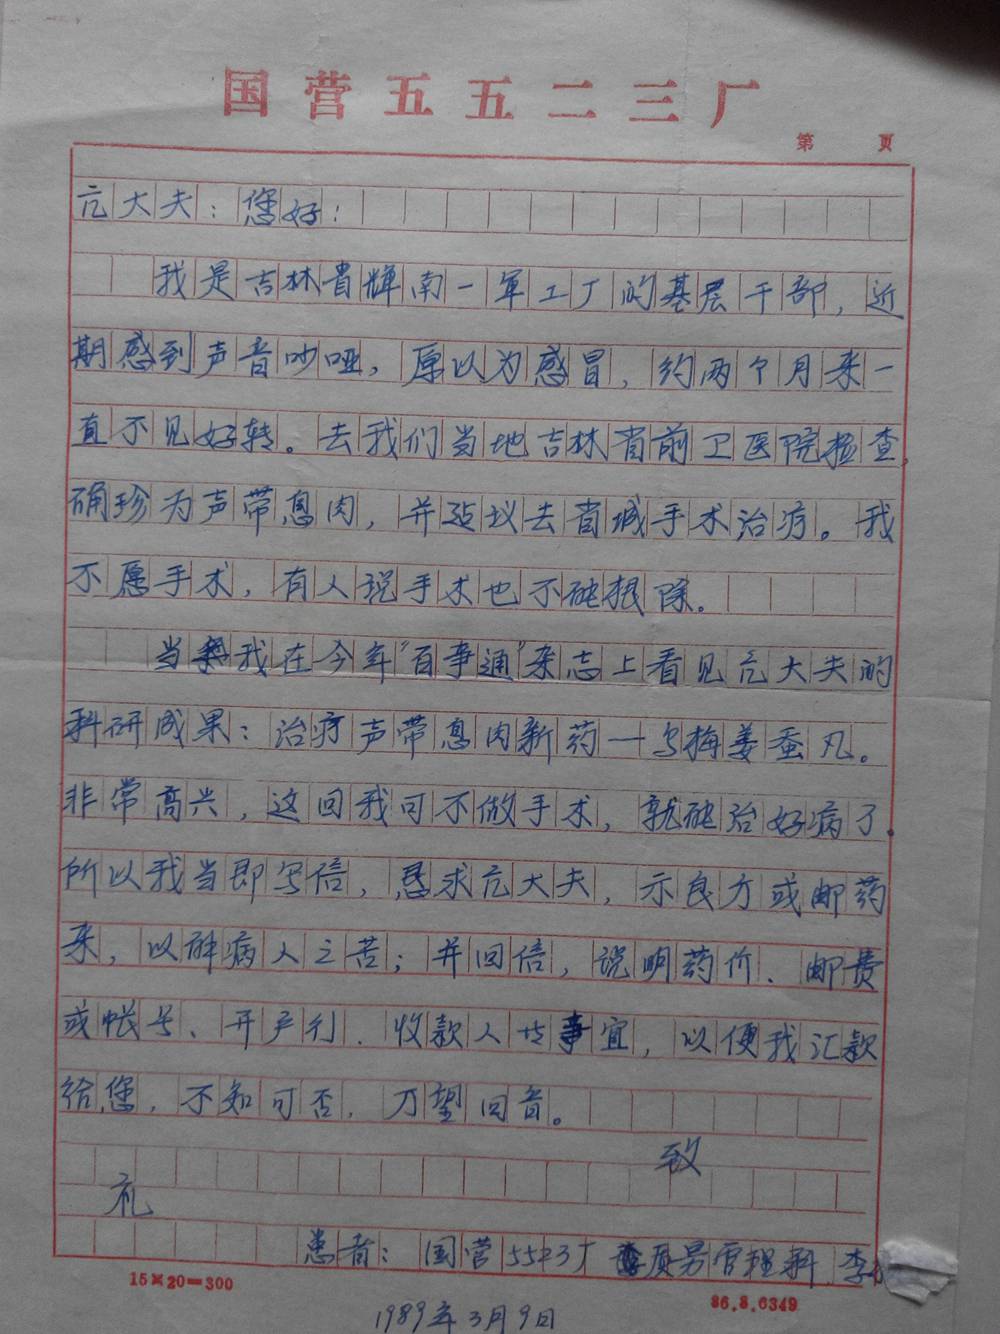 国营五五二三厂
第 页
亢大夫：您好！
我是吉林省辉南一军工厂的基层干部，近
期感到声音吵哑，原以为感冒，约两个月来一
直不见好转。去我们当地吉林省前卫医院检查，
确珍为声带息肉，并建议去省城手术治疗。我
不愿手术，有人说手术也不能根除。
当我在今年“百事通”杂志上看见亢大夫的
科研成果：治疗声带息肉新药一乌梅姜蚕凡。
非常高兴，这回我可不做手术，就能治好病了。
所以我当即写信，恳求亢大夫，示良方或邮药
来，以解病人之苦；并回信，说明药价、邮费
或帐号、开户行、收款人等事宜，以便我汇款
给您，不知可否，万望回音。
致
礼
患者：国营5523厂质另管理科 李
15×20=300
86.8.6349
1989年3月9日